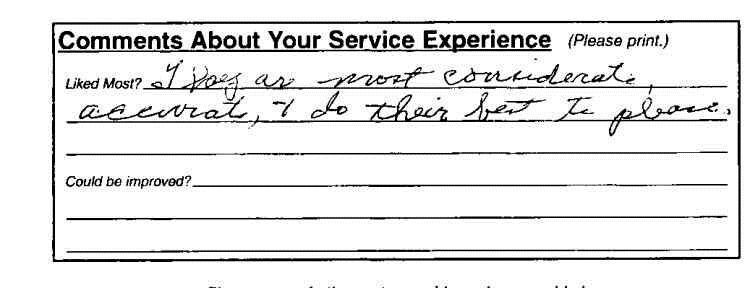 Comments About Your Service Experience (Please print.)
Liked Most? are most considerate,
accurate, & do their best to please.
Could be improved?